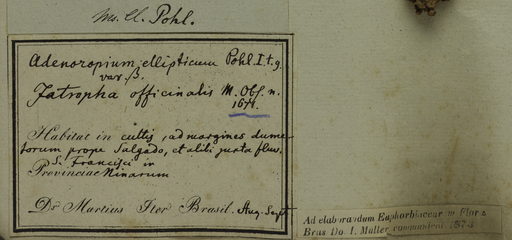 ms. Cl. Pohl.
Adenoropium ellipticum Pohl. I. t. 9.
var. β.
Jatropha officinalis M. Obs. n.
1671.
Habitat in cultis, ad margines dume-
torum prope Salgado, et alibi juxta fluv.
S. Francisci in
Provinciae Minarum
Dr Martius Iter Brasil. Aug. Sept
Ad elaborandum Euphorbiacear. in Flora
Bras Do. I. Müller communicat. 1873